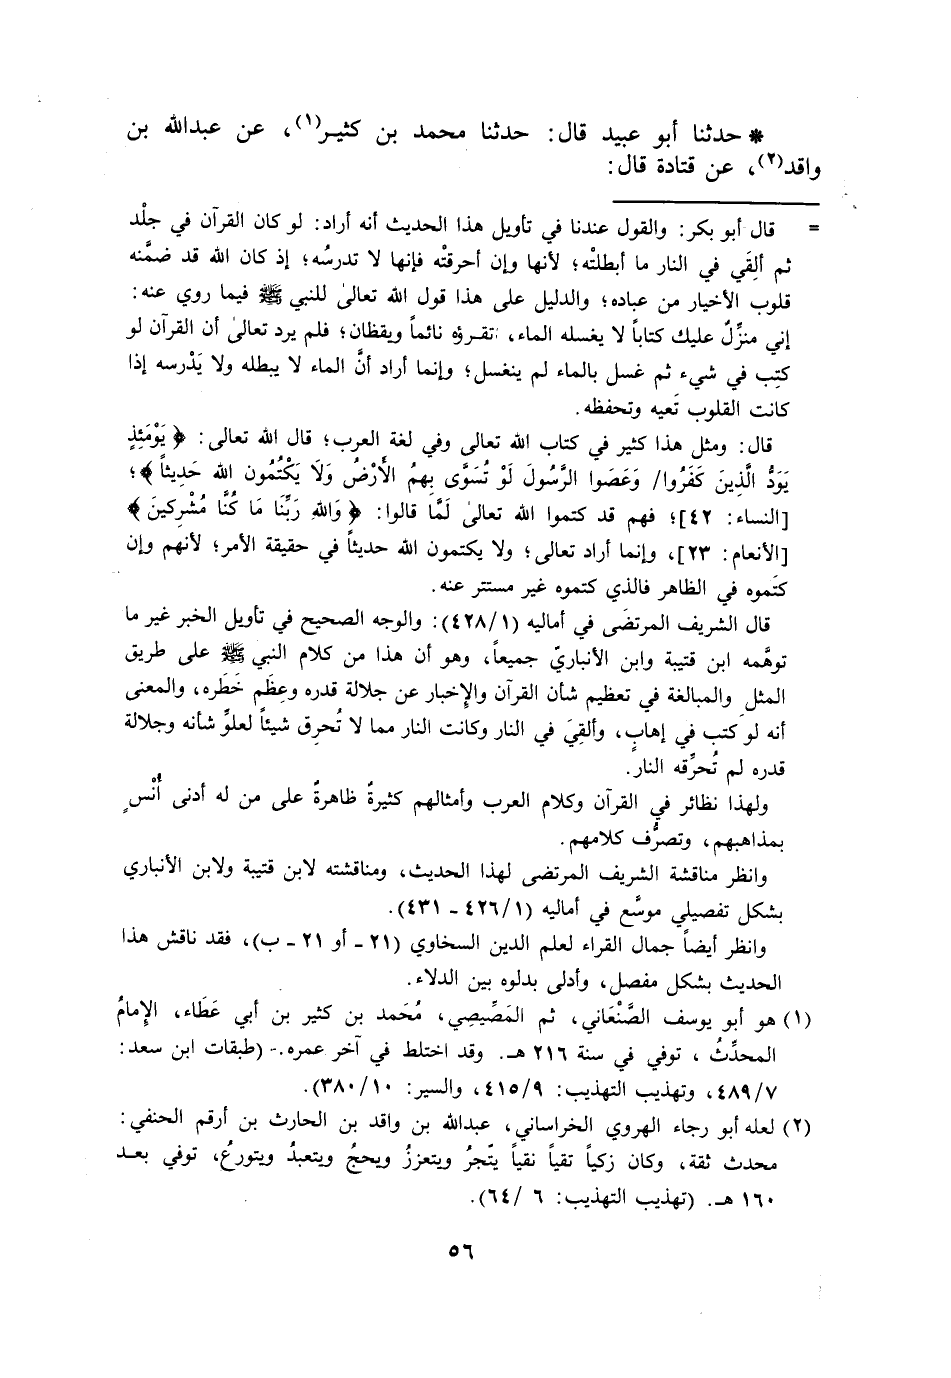 * حدثنا أبو عبيد قال: حدثنا محمد بن كثير(١)، عن عبدالله بن
واقد(٢)، عن قتادة قال:
= قال أبو بكر: والقول عندنا في تأويل هذا الحديث أنه أراد: لو كان القرآن في جلْد
ثم ألقِي في النار ما أبطلتْه؛ لأنها وإن أحرقتْه فإنها لا تدرسُه؛ إذ كان الله قد ضمَّنه
قلوب الأخيار من عباده؛ والدليل على هذا قول الله تعالىٰ للنبي ﷺ فيما روي عنه:
إني منزِّلٌ عليك كتاباً لا يغسله الماء، تقرؤه نائماً ويقظان؛ فلم يرد تعالىٰ أن القرآن لو
كتِب في شيء ثم غسل بالماء لم ينغسل؛ وإنما أراد أنَّ الماء لا يبطله ولا يَدْرسه إذا
كانت القلوب تَعيه وتحفظه.
قال: ومثل هذا كثير في كتاب الله تعالى وفي لغة العرب؛ قال الله تعالى: ﴿يَوْمَئِذٍ
يَوَدُّ الَّذِينَ كَفَرُوا/ وَعَصَوا الرَّسُولَ لَوْ تُسَوَّى بِهِمُ الأَرْضُ وَلَا يَكْتُمُون الله حَدِيثاً﴾؛
[النساء: ٤٢]؛ فهم قد كتموا الله تعالىٰ لَمَّا قالوا: ﴿وَاللهِ رَبِّنَا مَا كُنَّا مُشْرِكينَ﴾
[الأنعام: ٢٣]، وإنما أراد تعالى؛ ولا يكتمون الله حديثاً في حقيقة الأمر؛ لأنهم وإن
كتَموه في الظاهر فالذي كتموه غير مستتر عنه.
قال الشريف المرتضَى في أماليه (٤٢٨/١): والوجه الصحيح في تأويل الخبر غير ما
توهَّمه ابن قتيبة وابن الأنباريّ جميعاً، وهو أن هذا من كلام النبي ﷺ على طريق
المثل والمبالغة في تعظيم شأن القرآن والإخبار عن جلالة قدره وعِظَم خَطَره، والمعنى
أنه لو كتب في إهابٍ، وألقِيَ في النار وكانت النار مما لا تُحرِق شيئاً لعلوِّ شأنه وجلالة
قدره لم تُحرِّقه النار.
ولهذا نظائر في القرآن وكلام العرب وأمثالهم كثيرةٌ ظاهرةٌ على من له أدنى أُنْسٍ
بمذاهبهم، وتصرُّف كلامهم.
وانظر مناقشة الشريف المرتضى لهذا الحديث، ومناقشته لابن قتيبة ولابن الأنباري
بشكل تفصيلي موسَّع في أماليه (٤٢٦/١ - ٤٣١).
وانظر أيضاً جمال القراء لعلم الدين السخاوي (٢١ - أو ٢١ - ب)، فقد ناقش هذا
الحديث بشكل مفصل، وأدلى بدلوه بين الدلاء.
(١) هو أبو يوسف الصَّنْعَاني، ثم المَصِّيصِي، مُحَمد بن كثير بن أبي عَطَاء، الإمامُ
المحدِّثُ، توفي في سنة ٢١٦ هـ. وقد اختلط في آخر عمره.- (طبقات ابن سعد:
٤٨٩/٧، وتهذيب التهذيب: ٤١٥/٩، والسير: ٣٨٠/١٠).
(٢) لعله أبو رجاء الهروي الخراساني، عبدالله بن واقد بن الحارث بن أرقم الحنفي:
محدث ثقة، وكان زكياً تقياً نقياً يتّجرُ ويتعززُ ويحجُ ويتعبدُ ويتورعُ، توفي بعد
١٦٠ هـ. (تهذيب التهذيب: ٦ /٦٤).
٥٦